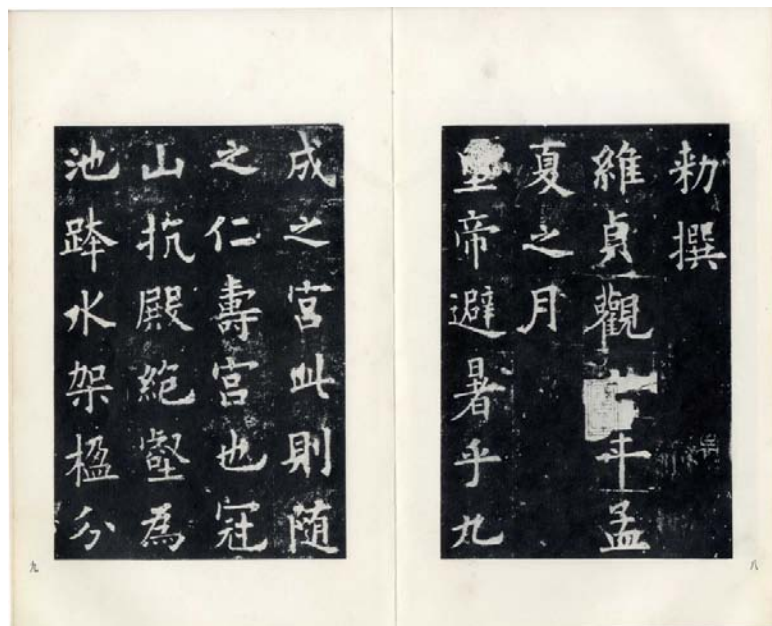 勑撰
維貞觀年孟
夏之月
皇帝避暑乎九
八
成之宮此則随
之仁壽宮也冠
山抗殿絕壑為
池跨水架楹分
九